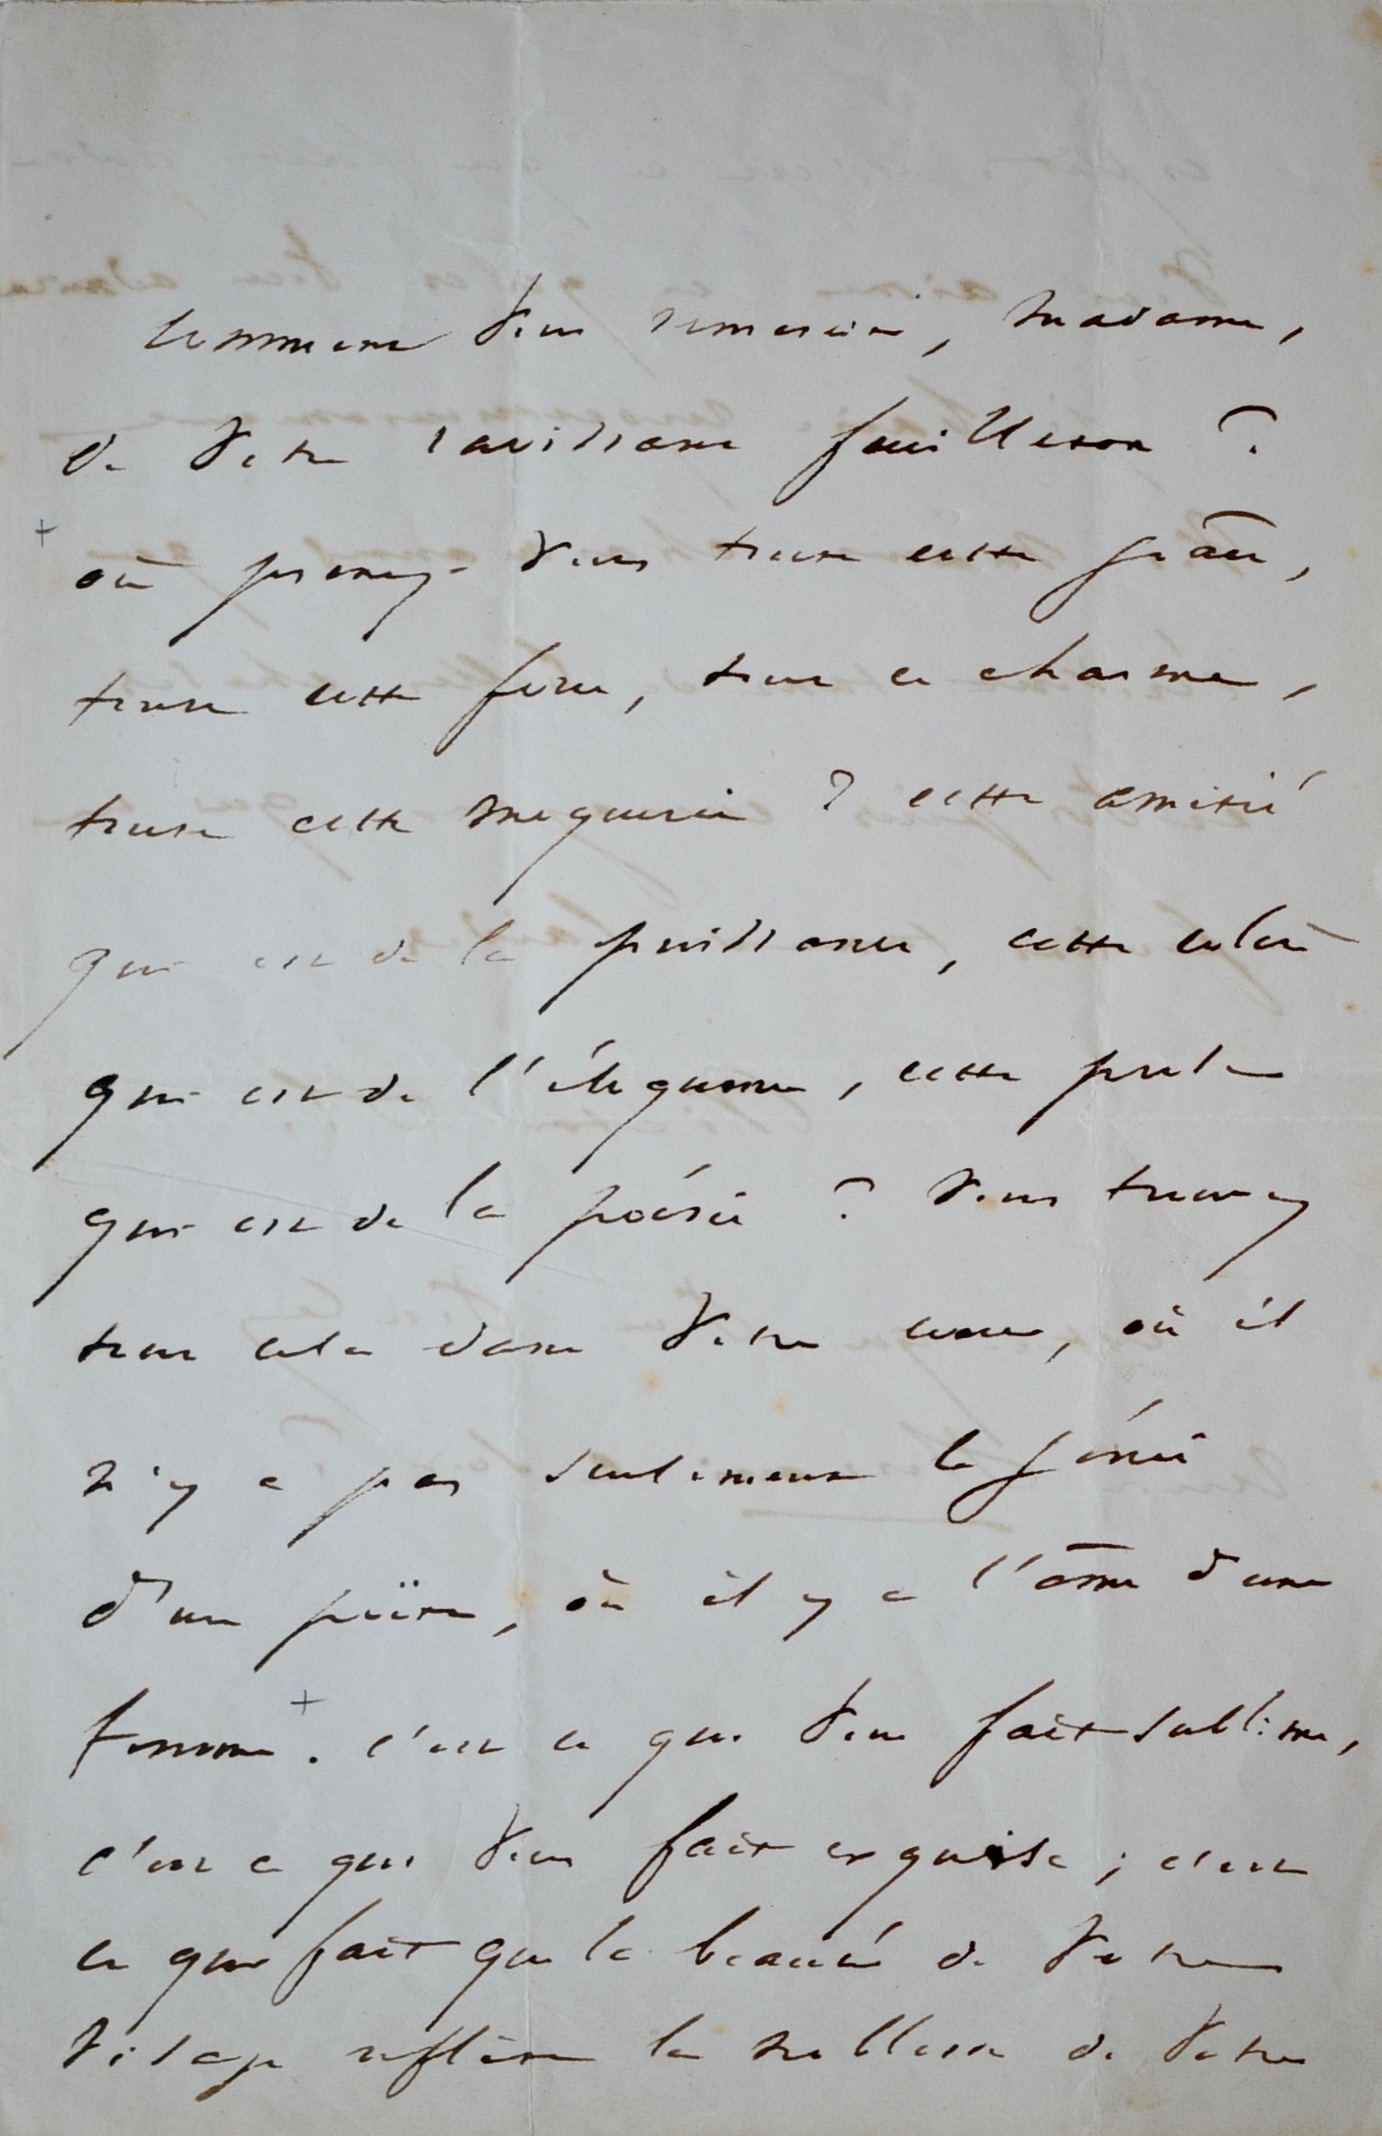 Comment vous remercier, Madame,
de votre ravissant feuilleton ?
où prenez-vous toute cette grâce,
toute cette force, tout ce charme,
toute cette moquerie ? cette amitié
qui est de la puissance, cette colère
qui est de l'éloquence, cette prose
qui est de la poésie ? Vous trouvez
tout cela dans votre cœur, où il
n'y a pas seulement le génie
d'un poëte, où il y a l'âme d'une
femme. c'est ce qui vous fait sublime,
c'est ce qui vous fait exquise ; c'est
ce qui fait que la beauté de votre
visage reflète la noblesse de votre